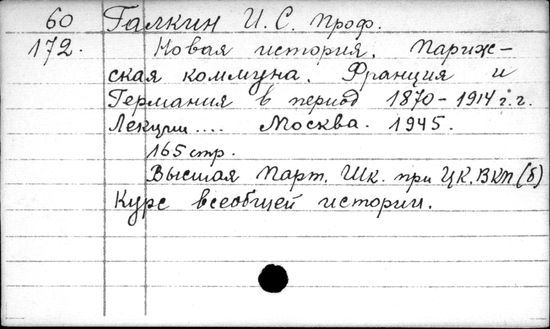 60 Галкин И. С. проф.
172. Новая история. Париж-
ская коммуна. Франция и
Германия в период 1870-1914 г.г.
Лекции.... Москва. 1945.
165 стр.
Высшая Парт. Шк. при ЦК. ВКП (б)
Курс всеобщей истории.